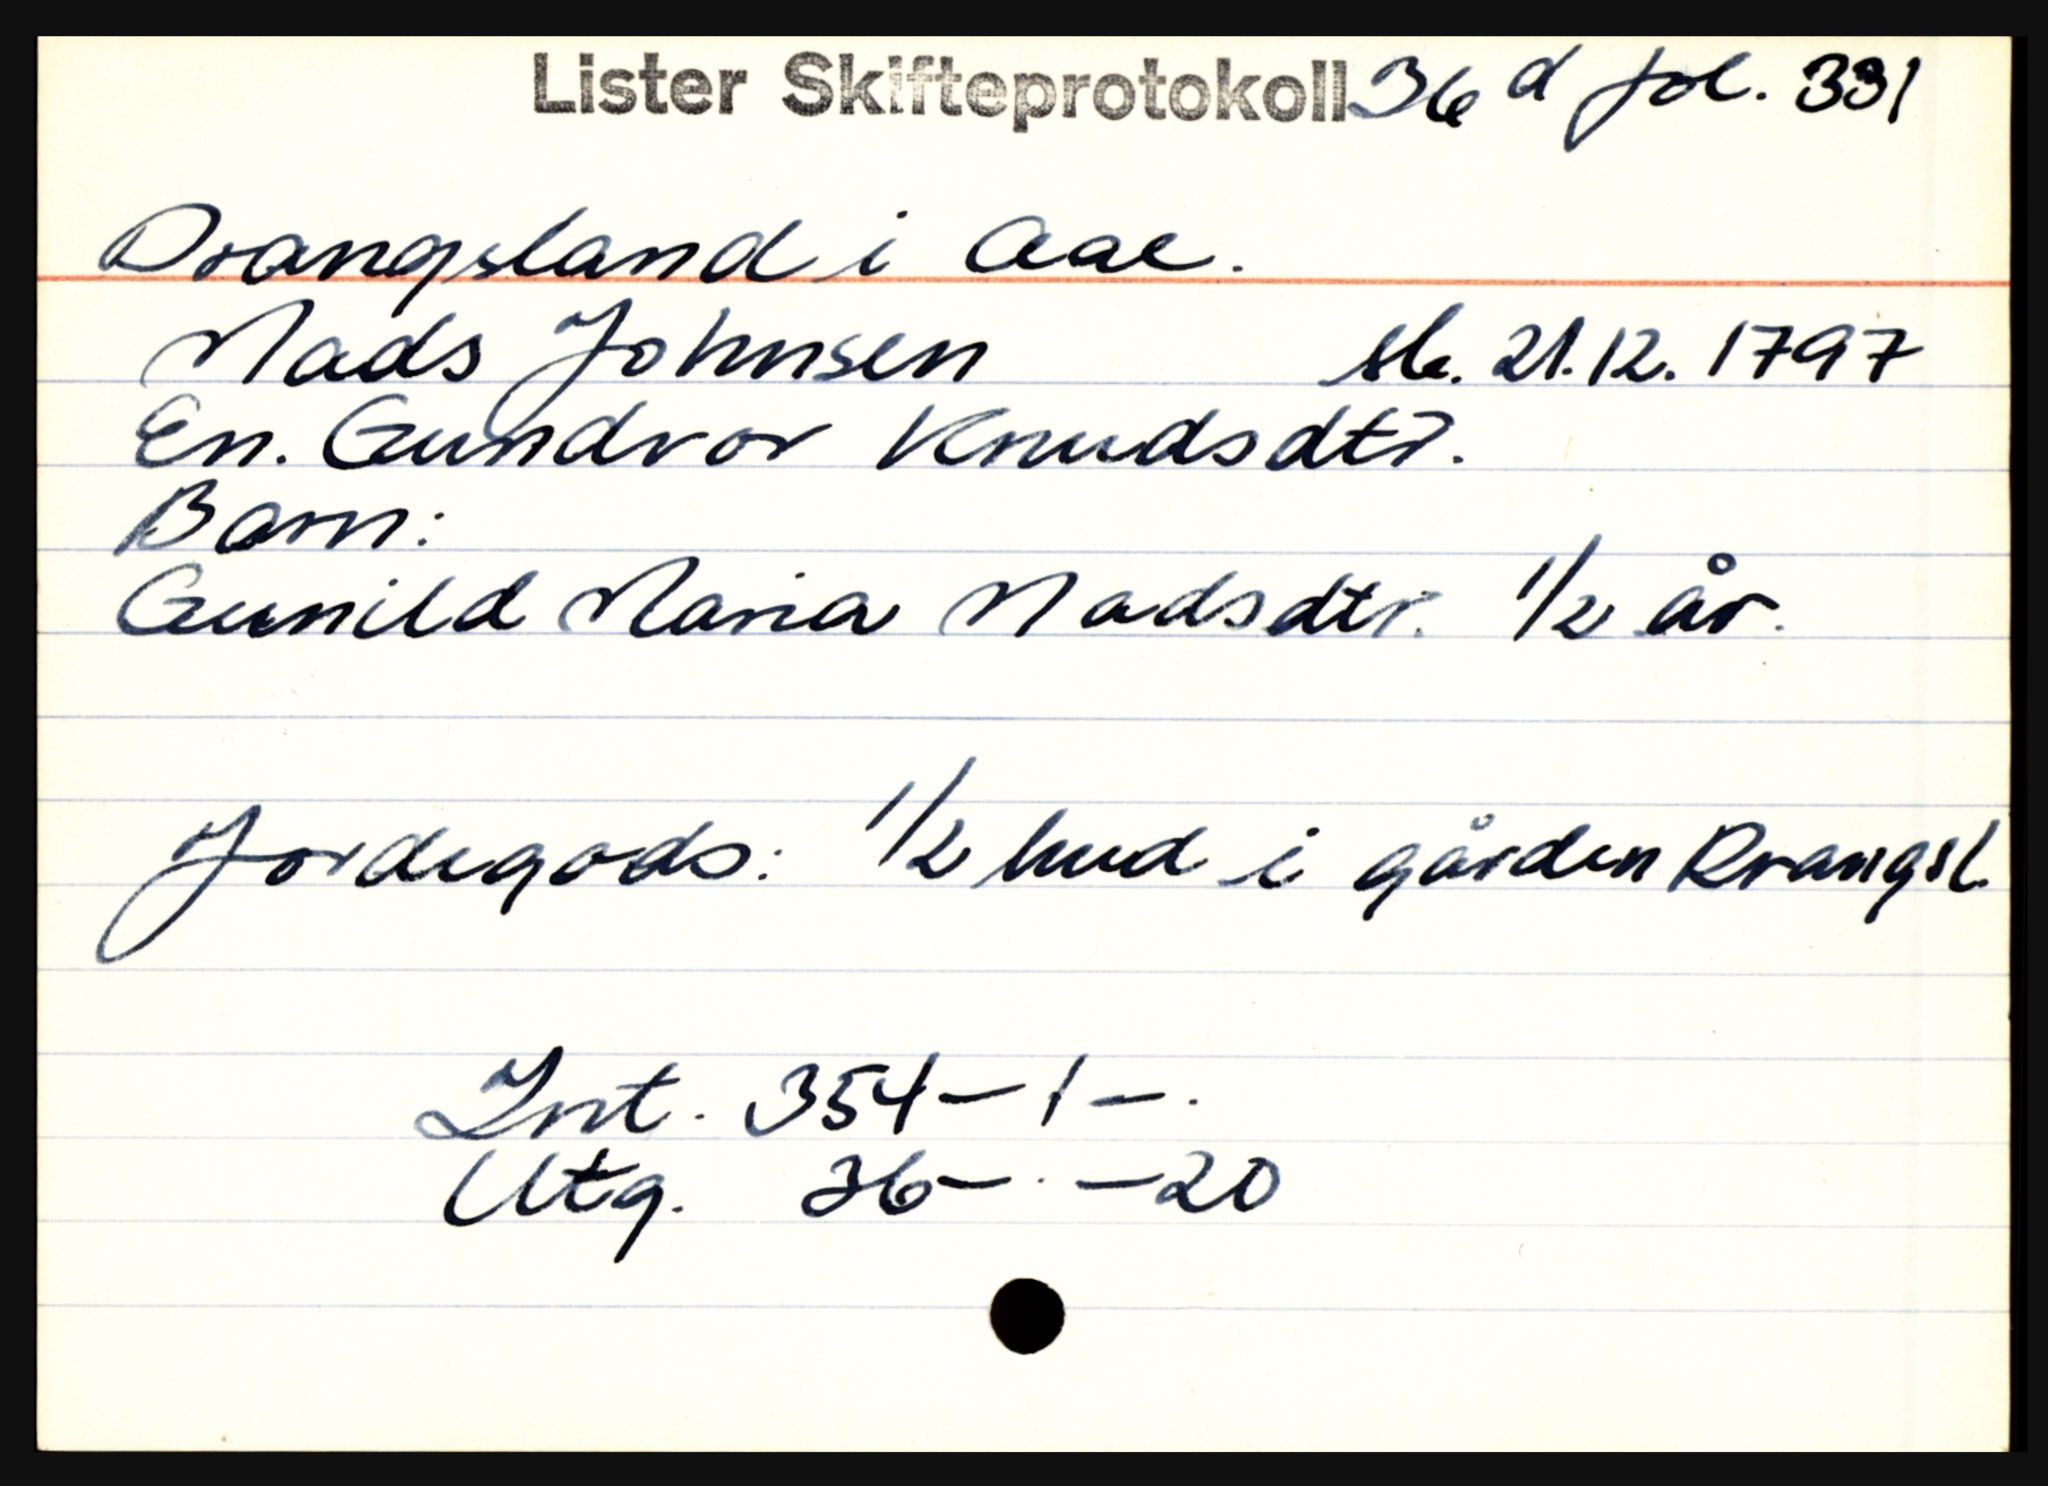 Lister Skifteprotokoll 36 d fol. 331
Drangsland i Aae.
Mads Johnsen sk. 21.12.1797
En. Gundvor Knudsdtr.
Barn:
Gunild Maria Madsdtr. 1/2 år.
Jordegods: 1/2 hud i gården Drangsl.
Int. 354–1–.
Utg. 36–.–20